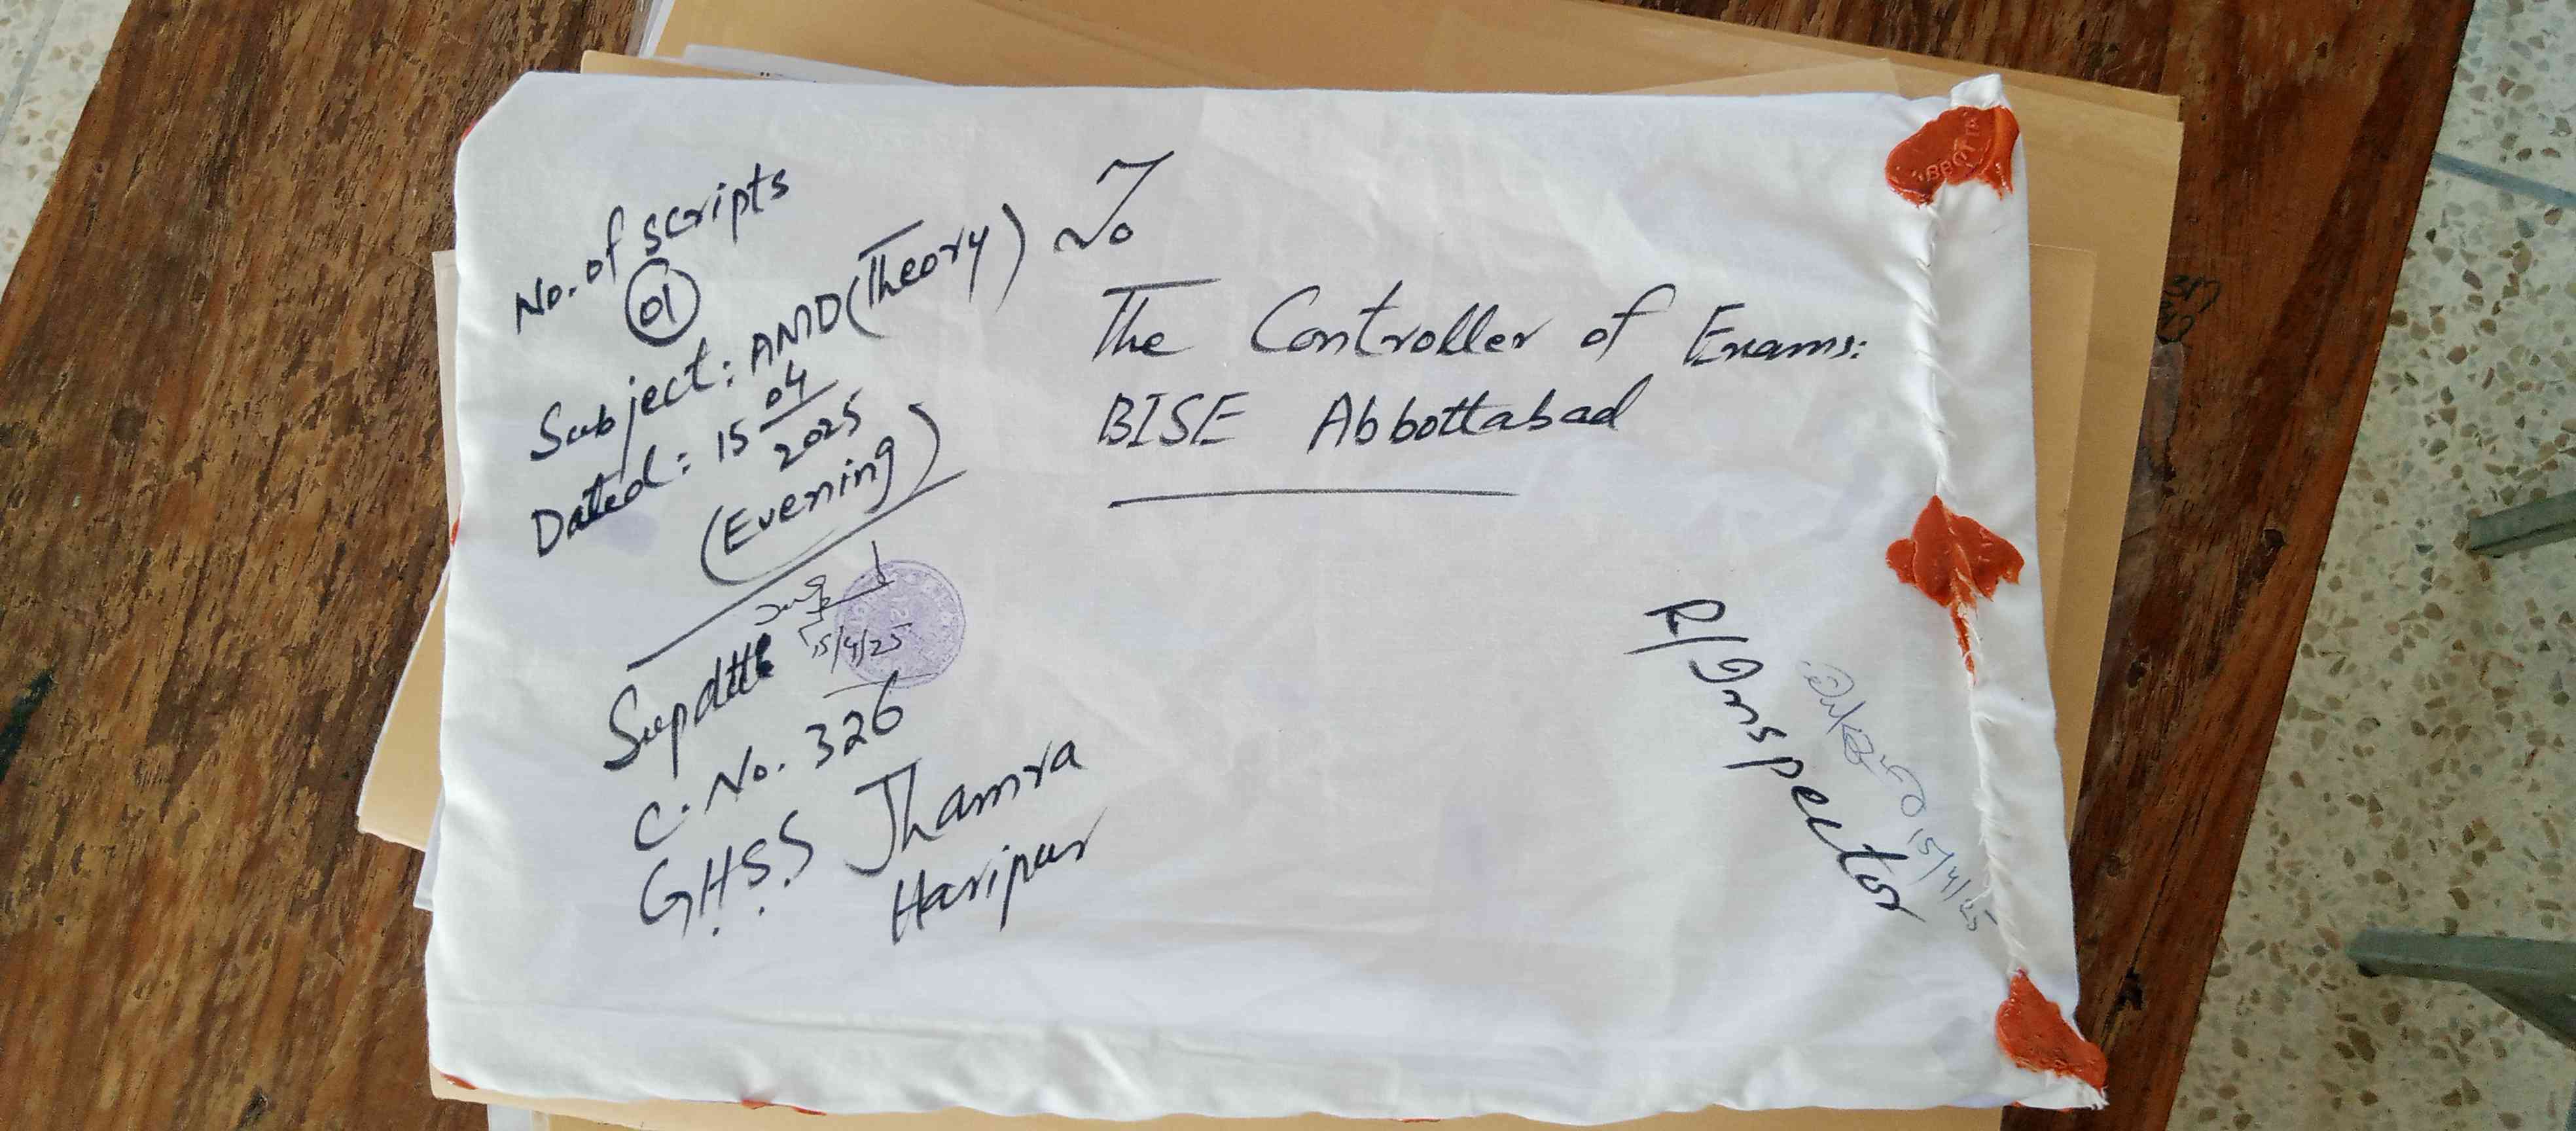 No. of scripts
01
Subject: AMD (Theory)
Dated: 15 04
2025
(Evening)
15/4/25
Supdtt
C. No. 326
G.H.S.S Jhamra
Haripur
To
The Controller of Exams:
BISE Abbottabad
R/Inspector
15/4/25